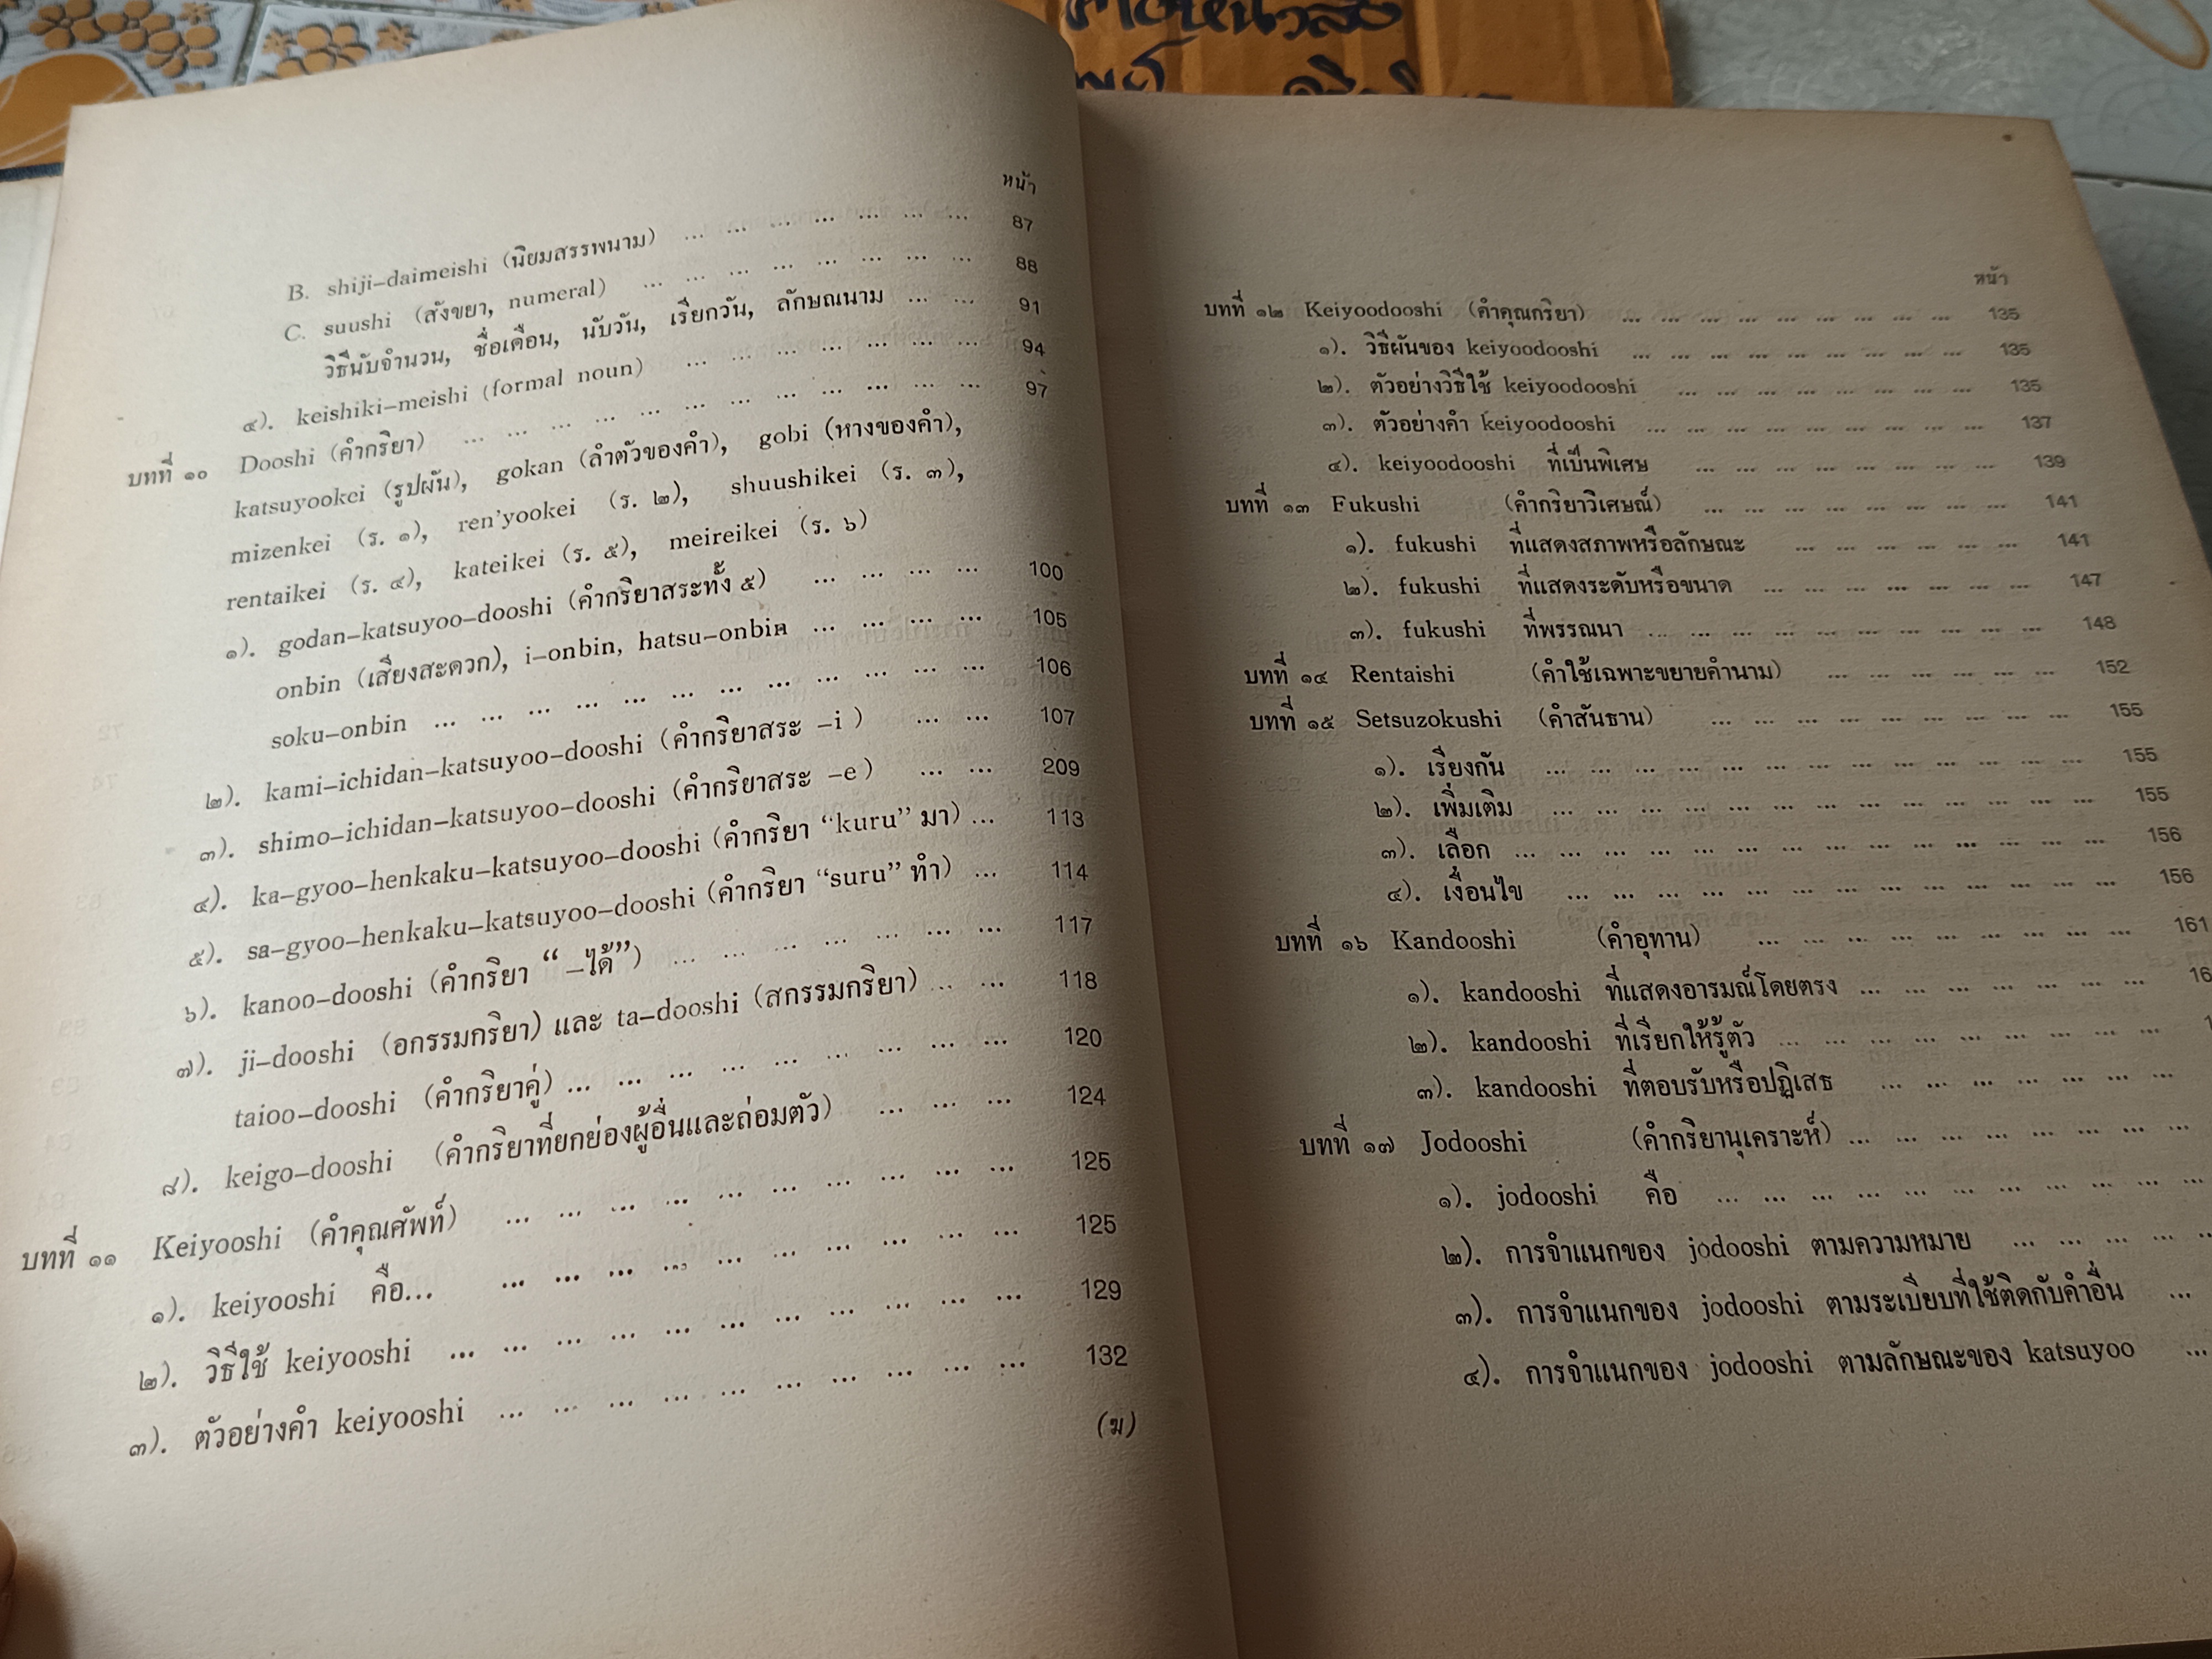 หน้า
B. shiji-daimeishi (นิยมสรรพนาม) ... ... ... ... ... ... ... 87
C. suushi (สังขยา, numeral) ... ... ... ... ... ... ... ... 88
วิธีนับจำนวน, ชื่อเดือน, นับวัน, เรียกวัน, ลักษณนาม ... ... 91
๔). keishiki-meishi (formal noun) ... ... ... ... ... ... ... 94
บทที่ ๑๐ Dooshi (คำกริยา) ... ... ... ... ... ... ... ... ... ... ... ... 97
katsuyookei (รูปผัน), gokan (ลำตัวของคำ), gobi (หางของคำ),
mizenkei (ร. ๑), ren'yookei (ร. ๒), shuushikei (ร. ๓),
rentaikei (ร. ๔), kateikei (ร. ๕), meireikei (ร. ๖)
๑). godan-katsuyoo-dooshi (คำกริยาสระทั้ง ๕) ... ... ... ... 100
onbin (เสียงสะดวก), i-onbin, hatsu-onbin ... ... ... ... 105
soku-onbin ... ... ... ... ... ... ... ... ... ... ... ... 106
๒). kami-ichidan-katsuyoo-dooshi (คำกริยาสระ -i ) ... ... 107
๓). shimo-ichidan-katsuyoo-dooshi (คำกริยาสระ -e ) ... ... 209
๔). ka-gyoo-henkaku-katsuyoo-dooshi (คำกริยา "kuru" มา) ... 113
๕). sa-gyoo-henkaku-katsuyoo-dooshi (คำกริยา "suru" ทำ) ... 114
๖). kanoo-dooshi (คำกริยา " -ได้") ... ... ... ... ... ... ... 117
๗). ji-dooshi (อกรรมกริยา) และ ta-dooshi (สกรรมกริยา) ... ... 118
taioo-dooshi (คำกริยาคู่) ... ... ... ... ... ... ... ... ... 120
๘). keigo-dooshi (คำกริยาที่ยกย่องผู้อื่นและถ่อมตัว) ... ... ... 124
บทที่ ๑๑ Keiyooshi (คำคุณศัพท์) ... ... ... ... ... ... ... ... ... ... 125
๑). keiyooshi คือ... ... ... ... ... ... ... ... ... ... ... 125
๒). วิธีใช้ keiyooshi ... ... ... ... ... ... ... ... ... ... ... 129
๓). ตัวอย่างคำ keiyooshi ... ... ... ... ... ... ... ... ... ... 132
(ฆ)
หน้า
บทที่ ๑๒ Keiyoodooshi (คำคุณกริยา) ... ... ... ... ... ... ... ... ... 135
๑). วิธีผันของ keiyoodooshi ... ... ... ... ... ... ... ... ... 135
๒). ตัวอย่างวิธีใช้ keiyoodooshi ... ... ... ... ... ... ... ... 135
๓). ตัวอย่างคำ keiyoodooshi ... ... ... ... ... ... ... ... ... 137
๔). keiyoodooshi ที่เป็นพิเศษ ... ... ... ... ... ... ... ... 139
บทที่ ๑๓ Fukushi (คำกริยาวิเศษณ์) ... ... ... ... ... ... ... ... 141
๑). fukushi ที่แสดงสภาพหรือลักษณะ ... ... ... ... ... ... 141
๒). fukushi ที่แสดงระดับหรือขนาด ... ... ... ... ... ... ... 147
๓). fukushi ที่พรรณนา ... ... ... ... ... ... ... ... ... ... 148
บทที่ ๑๔ Rentaishi (คำใช้เฉพาะขยายคำนาม) ... ... ... ... ... ... 152
บทที่ ๑๕ Setsuzokushi (คำสันธาน) ... ... ... ... ... ... ... ... ... 155
๑). เรียงกัน ... ... ... ... ... ... ... ... ... ... ... ... ... 155
๒). เพิ่มเติม ... ... ... ... ... ... ... ... ... ... ... ... ... 155
๓). เลือก ... ... ... ... ... ... ... ... ... ... ... ... ... ... 156
๔). เงื่อนไข ... ... ... ... ... ... ... ... ... ... ... ... ... 156
บทที่ ๑๖ Kandooshi (คำอุทาน) ... ... ... ... ... ... ... ... ... 161
๑). kandooshi ที่แสดงอารมณ์โดยตรง ... ... ... ... ... ... ...
๒). kandooshi ที่เรียกให้รู้ตัว ... ... ... ... ... ... ... ... ...
๓). kandooshi ที่ตอบรับหรือปฏิเสธ ... ... ... ... ... ... ...
บทที่ ๑๗ Jodooshi (คำกริยานุเคราะห์) ... ... ... ... ... ... ... ...
๑). jodooshi คือ ... ... ... ... ... ... ... ... ... ... ...
๒). การจำแนกของ jodooshi ตามความหมาย ... ... ... ... ...
๓). การจำแนกของ jodooshi ตามระเบียบที่ใช้ติดกับคำอื่น ...
๔). การจำแนกของ jodooshi ตามลักษณะของ katsuyoo ...